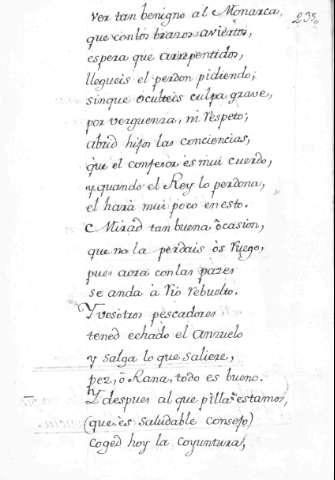 235
ver tan benigno al Monarca,
que con los brazos aviertos,
espera que arrepentidos,
llegueis el perdon pidiendo;
sinque oculteis culpa grave,
por verguenza, ni respeto;
abrid hijos las conciencias,
que el confesor es mui cuerdo,
y quando el Rey lo perdona,
el harà mui poco en esto.
Mirad tan buena ocasion,
que no la perdais òs ruego,
pues aora con las pazes
se anda à rio rebuelto.
Y vosotros pescadores
tened echado el anzuelo
y salga lo que saliere,
pez, ò Rana, todo es bueno.
Y despues al que pillaredes
(que es saludable consejo)
coged hoy la coyuntura,